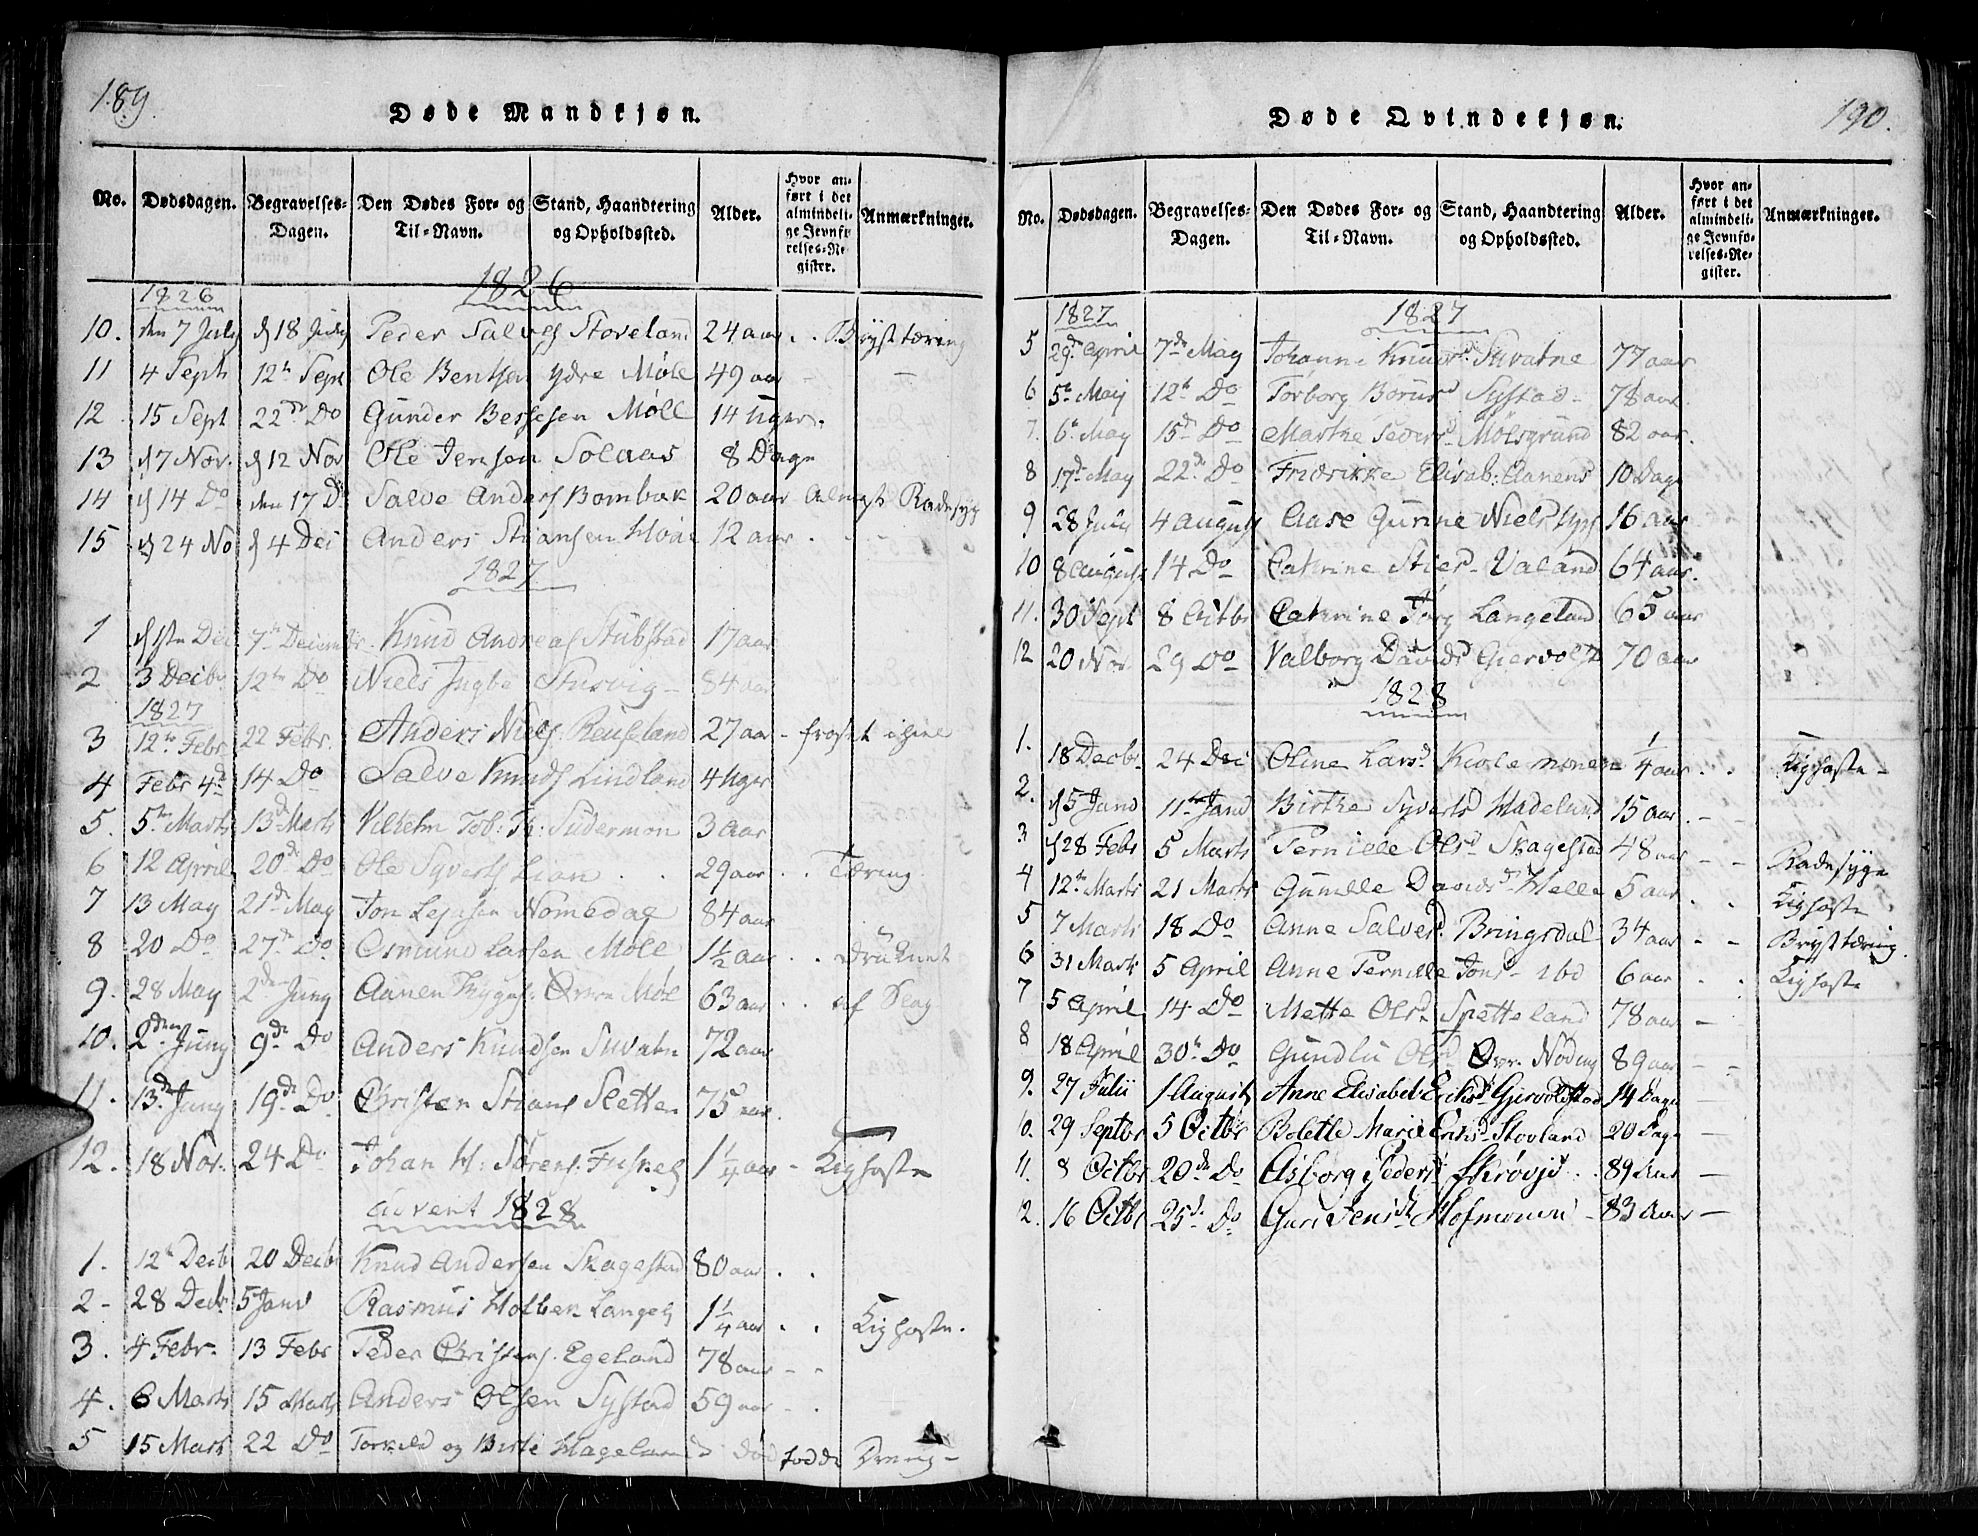 189.
Døde Mandkjøn.
No. Dødsdagen. Begravelses-Dagen. Den Dødes For- og Til-Navn. Stand, Haandtering og Opholdssted. Alder. Hvor anført i det almindelige Jevnførelses-Register. Anmærkninger.
1826
1826
10. den 7 July d 18 July Peder Salves Stoveland 24 aar . . Brysttæring
11 4 Sept 12te Sept Ole Bentsen ydre Møle 49 aar - -
12 15 Sept 22de Do Gunder Bessesen Møll 14 Uger.
13 d 7 Nov. d 12 Nov Ole Jensen Solaas 8 Dage
14 d 14 Do den 17 Do Salve Anders Bombæk 20 aar Almgt Radesyg
15 d 24 No d 4 Dec Anders Stiansen 12 aar . - -
1827
1 d 1ste Dec 7de Decembr. Knud Andreas Stubstad 17 aar
2 3 Decbr 12te Do Niels Ingbr Stusvig - 84 aar
1827
3 12te Febr 22 Febr. Anders Niels. Reuseland 27 aar - frosset ihiel
4 Febr 4de 14 Do Salve Knuds Lindland 4 Uger
5. 5te Marts 13de Marts Vilhelm Tob: Th: Sudermon 3 Aar
6 12 April 20de Do Ole Syverts Lian . . 29 aar . . Tæring
7 13 May 21de May Jon Lejvsen Nomedal 84 aar
8 20 Do 27de Do Osmund Larsen Møll 1½ aar . . Druknet
9. 28 May 2den Juny Aanen Trygus: Øvre Møl 63 aar . . af Slag
10. 2den Juny 9de Do Anders Knudsen Suvatn 72 aar
11. 13de Juny 19de Do Christen Stians Sletten 75 aar
12. 18 Nov. 24 Do Johan H: Sørens. 1¼ aar - Kighoste
Advent 1828
1. 12te Decb 20 Decbr Knud Andersen Skagestad 80 aar . .
2- 28 Decbr 5 Janv Rasmus Holben Langel 1¼ aar . . Kighoste.
3. 4 Febr. 13 Febr Peder Christens. Egeland 78 aar - -
4. 6 Marts 15 Marts Anders Olsen Systad 59 aar - .
5 15 Marts 22 Do Torkild og Birte Hageland Død fødde Dreng-
190.
Døde Qvindekjøn.
No. Dødsdagen. Begravelses-Dagen. Den Dødes For- og Til-Navn. Stand, Haandtering og Opholdssted. Alder. Hvor anført i det almindelige Jevnførelses-Register. Anmærkninger.
1827 1827
5 29de April 7de May Johanne Knudsd Suvatne 77 aar
6 5te May 12te Do Torborg Borusd Systad - 78 aar
7. 6te May 15de Do Marthe Pedersd Mølsgrund 82 aar.
8 17de May 22de Do Fridrikke Elisab: Aanens 10 Dage
9 28 July 4 August Aase Gurine Niels 16 aar
10 8 August 14 Do Catrine Stiersd. Valand 64 aar.
11. 30 Sept 8 Octbr Catrine Torg Langeland 65 aar
12 20 Nov 29 Do Valborg Davidsd Giervolst 70 aar
1828
1. 18 Decbr. 24 Dec Oline Larsd. Kiolemonen ¼ aar . . Kighoste -
2. d 5 Janv 11te Janv Birthe Syverts Hadeland 15 aar. - -
3 d 28 Febr 5 Marts Pernille Olsd. Skagestad 48 aar - - Radesyge
4 12te Marts 21 Marts Gunille Davidsd Helle 5 aar . . Kighoste
5 7 Marts 18 Do Anne Salvesd. Bringsdal 34 aar - - Brysttæring.
6 31 Marts 5 April Anne Pernille Jons- ibd 6 aar . . Kighoste
7 5 April 14 Do Mette Olsd. Spetteland 78 aar -
8 18 April 30te Do Gundlu Olsd Øvr. Noding 89 aar - -
9. 27 Julii 1 August Anne Elisabet Eriksd Gjervoldstad 14 Dage
10. 29 Septbr 5 Octbr Bolette Marie Eriksd Stovland 20 Dage -
11. 8 Octbr 20de Do Asborg Pedersd. . . 89 Aar -
12. 16 Octbr 25de Do Guri Jensd Hofmonen - 83 Aar -